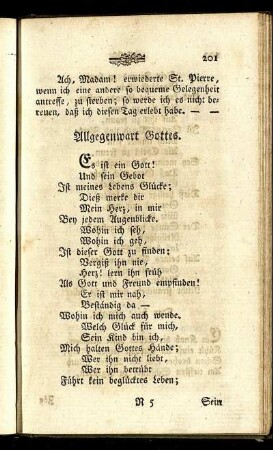 201
Ach, Madam! erwiederte St. Pierre,
wenn ich eine andere so bequeme Gelegenheit
antreffe, zu sterben; so werde ich es nicht be-
reuen, daß ich diesen Tag erlebt habe. — —
Allgegenwart Gottes.
Es ist ein Gott!
Und sein Gebot
Ist meines Lebens Glücke;
Dieß merke dir
Mein Herz, in mir
Bey jedem Augenblicke.
Wohin ich seh,
Wohin ich geh,
Ist dieser Gott zu finden;
Vergiß ihn nie,
Herz! lern ihn früh
Als Gott und Freund empfinden!
Er ist mir nah,
Beständig da —
Wohin ich mich auch wende.
Welch Glück für mich,
Sein Kind bin ich,
Mich halten Gottes Hände;
Wer ihn nicht liebt,
Wer ihn betrübt
Führt kein beglücktes Leben;
N 5 Sein